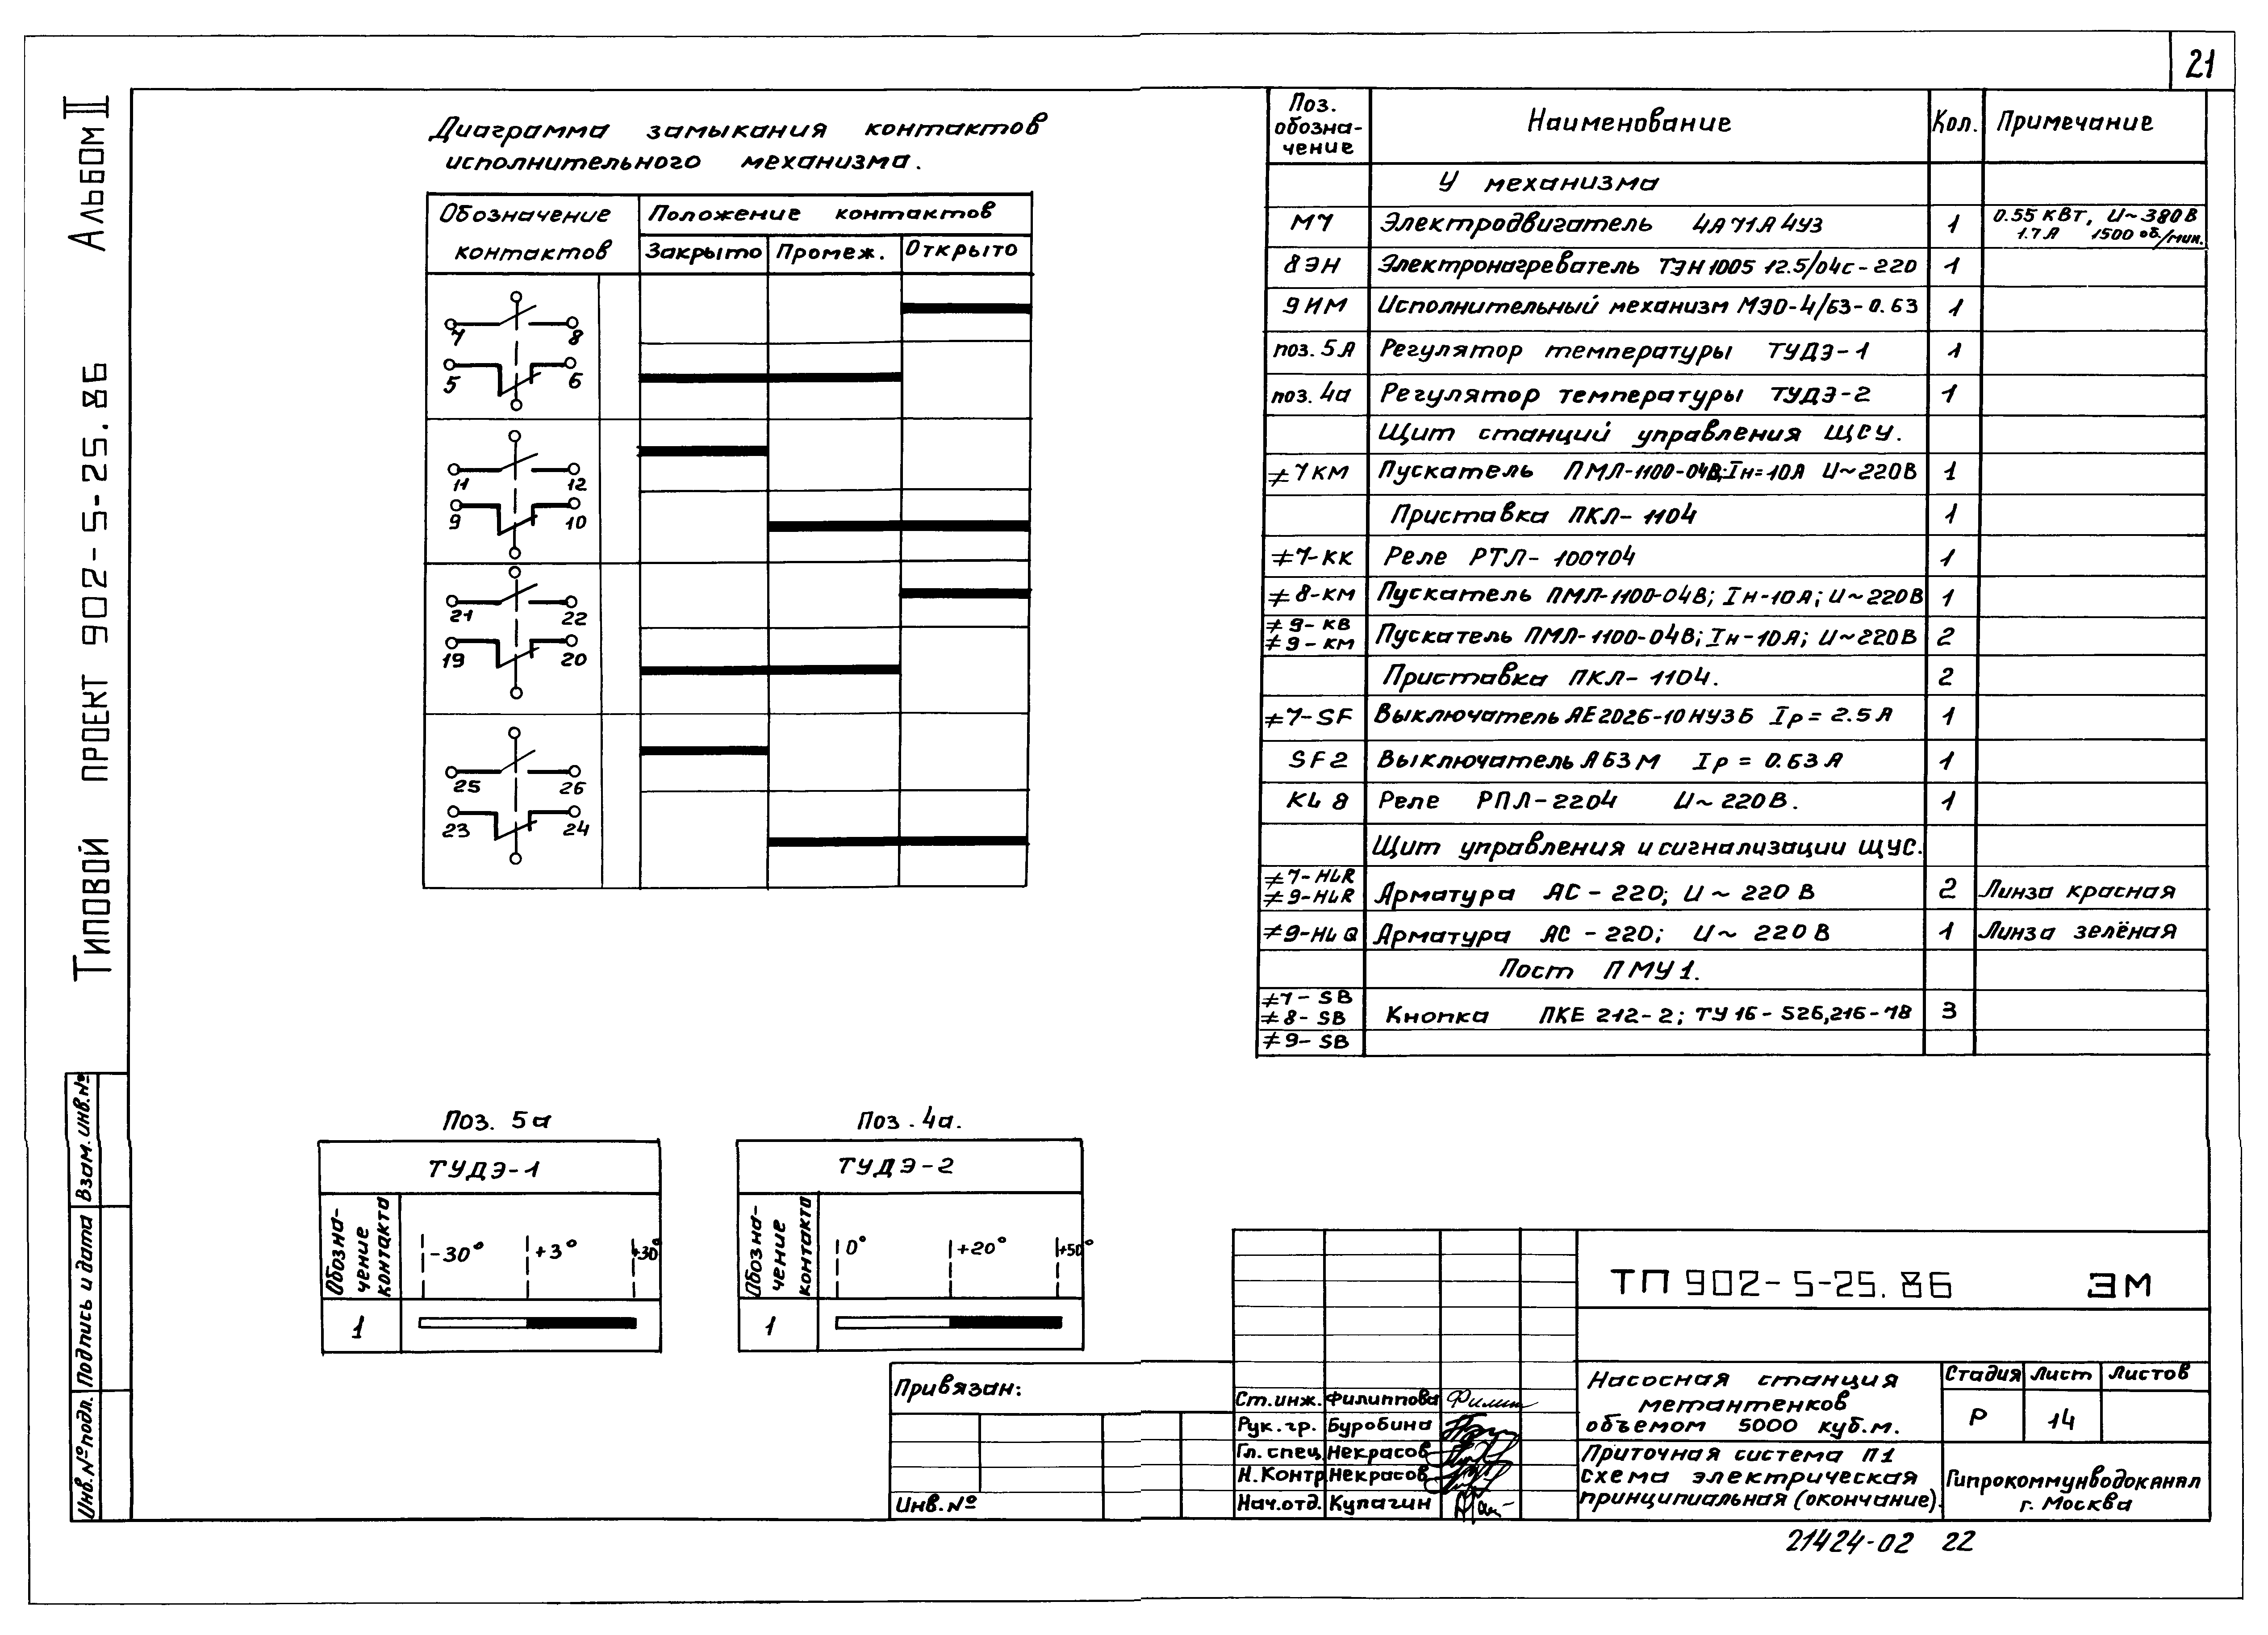 21
Альбом II
Типовой проект 902-5-25.86
Взам. инв. №
Подпись и дата
Инв. № подл.
Диаграмма замыкания контактов
исполнительного механизма.
Обозначение контактов
Положение контактов
Закрыто Промеж. Открыто
7 8
5 6
11 12
9 10
21 22
19 20
25 26
23 24
Поз. обозна-чение Наименование Кол. Примечание
У механизма
М7 Электродвигатель 4А71А4У3 1 0.55 кВт, U~380В 1.7А 1500 об/мин.
8ЭН Электронагреватель ТЭН1005 12.5/04с-220 1
9ИМ Исполнительный механизм МЭО-4/63-0.63 1
поз. 5А Регулятор температуры ТУДЭ-1 1
поз. 4а Регулятор температуры ТУДЭ-2 1
Щит станций управления ЩСУ.
≠7КМ Пускатель ПМЛ-1100-04В; Iн=10А U~220В 1
Приставка ПКЛ-1104 1
≠7-КК Реле РТЛ-100704 1
≠8-КМ Пускатель ПМЛ-1100-04В; Iн-10А; U~220В 1
≠9-КВ
≠9-КМ Пускатель ПМЛ-1100-04В; Iн-10А; U~220В 2
Приставка ПКЛ-1104. 2
≠7-SF Выключатель АЕ2026-10НУ3Б Iр=2.5А 1
SF2 Выключатель А63М Iр=0.63А 1
KL8 Реле РПЛ-2204 U~220В. 1
Щит управления и сигнализации ЩУС.
≠7-HLR
≠9-HLR Арматура АС-220; U~220В 2 Линза красная
≠9-HLQ Арматура АС-220; U~220В 1 Линза зелёная
Пост ПМУ1.
≠7-SB
≠8-SB Кнопка ПКЕ 212-2; ТУ16-526,216-78 3
≠9-SB
Поз. 5а
ТУДЭ-1
Обозна-чение контакта
-30° +3° +30°
1
Поз. 4а.
ТУДЭ-2
Обозна-чение контакта
0° +20° +50°
1
Привязан:
Инв. №
ТП 902-5-25.86 ЭМ
Ст. инж. Филиппова
Рук. гр. Буробина
Гл. спец. Некрасов
Н. Контр Некрасов
Нач. отд. Кулагин
Насосная станция
метантенков
объемом 5000 куб.м.
Стадия Лист Листов
Р 14
Приточная система П1
схема электрическая
принципиальная (окончание).
Гипрокоммунводоканал
г. Москва
21424-02 22